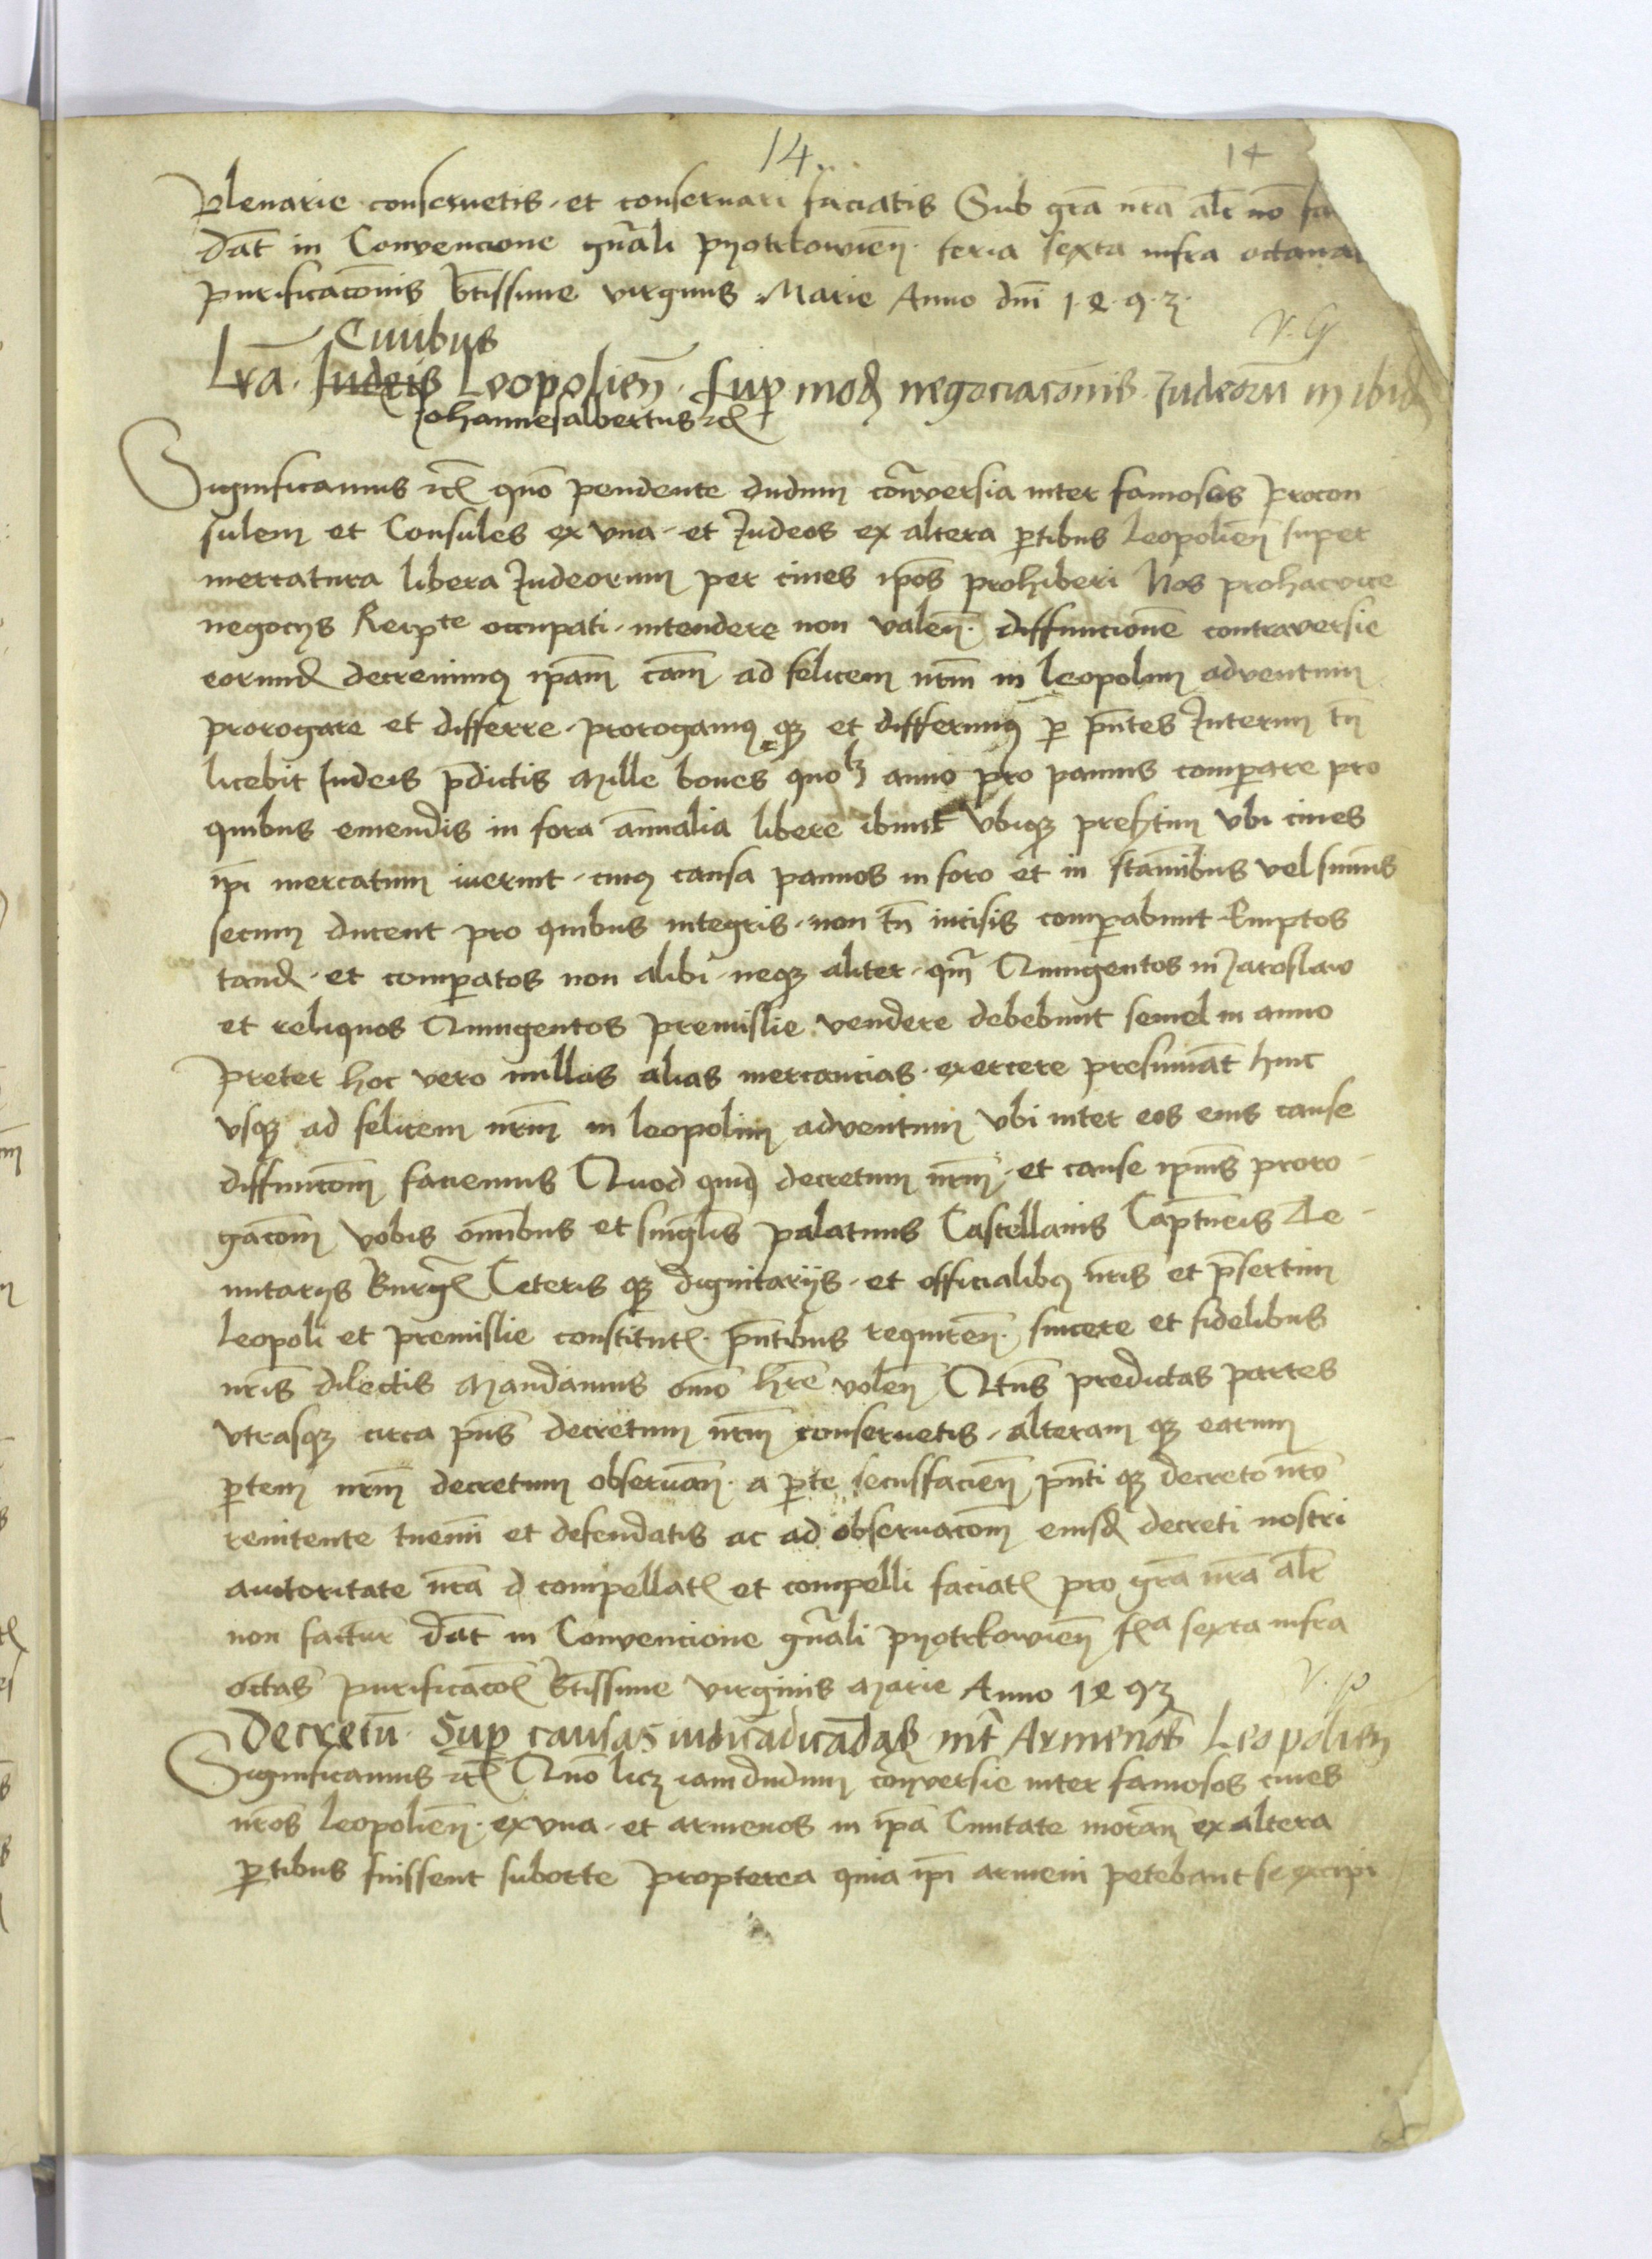 14
14
Plenarie conseruetis et conseruari faciatis Sub gra̅ nr̅a alr̅ no̅
dat̅ in Convencione gn̅ali pyotrkowien̅ feria sexta infra octauas
purificaco̅nis b̅tissime virginis Marie Anno dn̅i 1493
Ciuibus
Lr̅a Iudeis Leopolien̅ sup mod negociaco̅nis Judeoru̅ in ibid
V. G
Johannesalbertus etc
Significamus etc quo̅ pendente dudum co̅trouersia inter famosos procon
sulem et Consules ex vna et Judeos ex altera p̱tibus Leopolien̅ super
mercatura libera Judeorum per ciues ip̅os prohiberi Nos prohacvice
negocijs Reipce occupati intendere non valen̅ diffinicione̅ contraversie
eorund decreuimus ip̅am ca̅m ad felicem nr̅m in leopolim adventum
prorogare et differre prorogamus qȝ et differimus p̱ pn̅tes Interim tn̅
licebit Iudeis p̅dictis Mille boues quolȝ anno pro pannis comparare pro
quibus emendis in fora annalia libere ibunt vbiqȝ presertim vbi ciues
ip̅i mercatum iuerint cuius causa pannos in foro et in staminibus vel
secum ducent pro quibus integris non tn̅ incisis comparabunt Emptos
tand et comparatos non alibi neqȝ aliter qm̅ Quingentos in Jaroslaw
et reliquos Quingentos premislie vendere debebunt semel in anno
Preter hoc vero nullas alias mercancias exercere presumant hinc
vsqȝ ad felicem nr̅m in leopolim adventum vbi inter eos eius cause
diffinico̅m faciemus Quod quid decretum nr̅m et cause ipius proro
gaco̅m vobis om̅ibus et sing̅lis palatinis Castellanis Capt̅neis Te
nutarijs Burg̅ Ceteris qȝ dignitarijs et officialibus nr̅is et p̅sertim
Leopoli et premislie constitut pn̅tibus requiren̅ sincere et fidelibus
nr̅is dilectis Mandamus om̅o hr̅e volen̅ Qtus̅ predictas partes
vtrasqȝ circa pn̅s decretum nr̅m conseruetis alteram qȝ earum
p̱tem nr̅m decretum obseruan̅ a p̱te secusfacien̅ pn̅ti qȝ decreto nr̅o
renitente tuemi̅ et defendatis ac ad obseruaco̅m eiusd decreti nostri
auctoritate nr̅a d compellat et compelli faciat pro gra̅ nr̅a alr̅
non factur dat̅ in Convencione gn̅ali pyotrkowien̅ fr̅a sexta infra
octas purificaco̅ b̅tissime virginis Marie Anno 1493
V. p
Decretu̅ Sup causas int̅ Armenos Leopolien̅
Significamus etc Quo̅ licȝ iamdudum co̅trouersie inter famosos ciues
nr̅os leopolien̅ exvna et armenos in ip̅a Ciuitate moran̅ ex altera
p̱tibus fuissent suborte propterea quia ip̅i armeni petebant se excipi